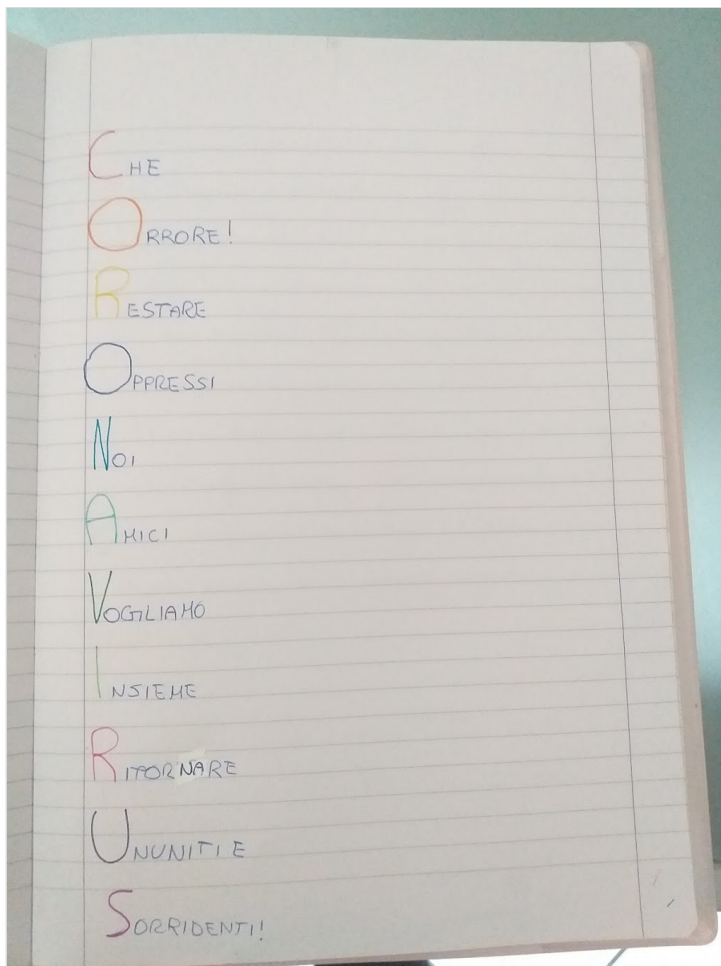 CHE
ORRORE!
RESTARE
OPPRESSI
NOI
AMICI
VOGLIAMO
INSIEME
RITORNARE
UNUNITI E
SORRIDENTI!